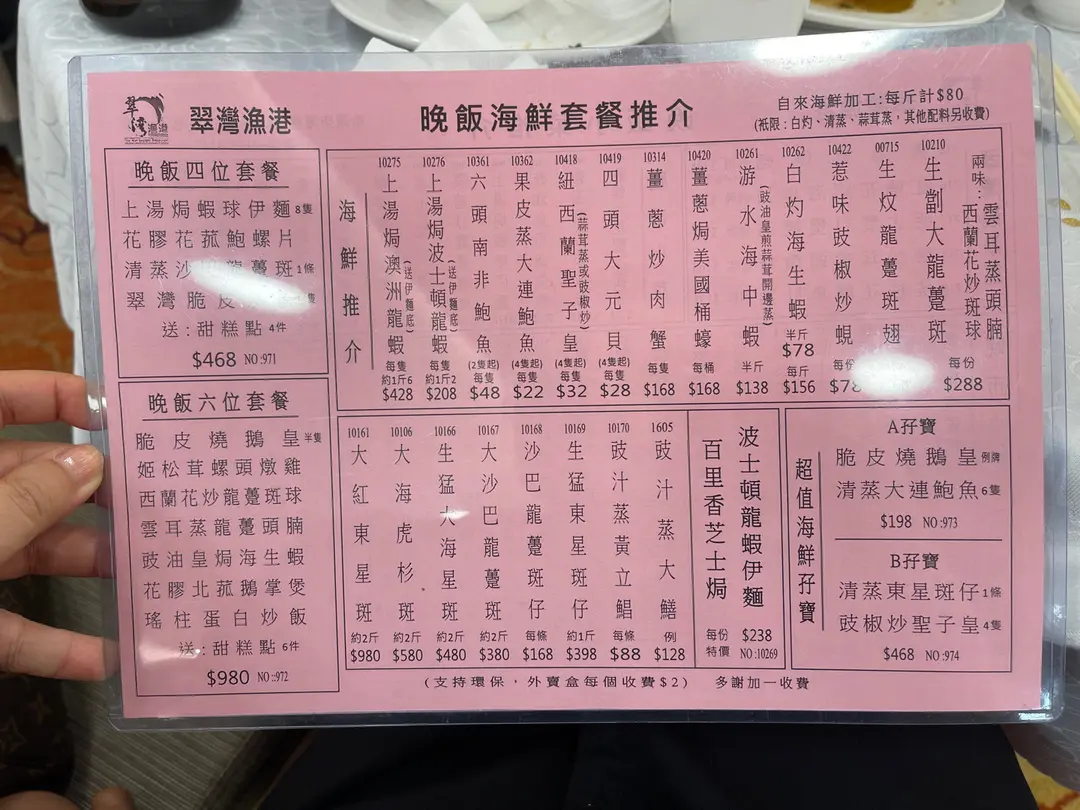 翠灣漁港
晚飯海鮮套餐推介
自來海鮮加工:每斤計$80
(祇限:白灼、清蒸、蒜茸蒸,其他配料另收費)
晚飯四位套餐
上湯焗蝦球伊麵8隻
花膠花菰鮑螺片
清蒸沙 龍躉斑1條
翠灣脆皮
送:甜糕點4件
$468 NO:971
晚飯六位套餐
脆皮燒鵝皇半隻
姬松茸螺頭燉雞
西蘭花炒龍躉斑球
雲耳蒸龍躉頭腩
豉油皇焗海生蝦
花膠北菰鵝掌煲
瑤柱蛋白炒飯
送:甜糕點6件
$980 NO::972
海鮮推介
10275 上湯焗澳洲龍蝦(送伊麵底) 每隻約1斤6 $428
10276 上湯焗波士頓龍蝦(送伊麵底) 每隻約1斤2 $208
10361 六頭南非鮑魚 (2隻起)每隻 $48
10362 果皮蒸大連鮑魚 (4隻起)每隻 $22
10418 紐西蘭聖子皇(蒜茸蒸或豉椒炒) (4隻起)每隻 $32
10419 四頭大元貝 (4隻起)每隻 $28
10314 薑蔥炒肉蟹 每隻 $168
10420 薑蔥焗美國桶蠔 每桶 $168
10261 游水海中蝦(豉油皇煎蒜茸開邊蒸) 半斤 $138
10262 白灼海生蝦 半斤 $78 每斤 $156
10422 惹味豉椒炒蜆 每份 $78
00715 生炆龍躉斑翅
10210 生劏大龍躉斑 每份 $288
兩味:雲耳蒸頭腩
西蘭花炒斑球
10161 大紅東星斑 約2斤 $980
10106 大海虎杉斑 約2斤 $580
10166 生猛大海星斑 約2斤 $480
10167 大沙巴龍躉斑 約2斤 $380
10168 沙巴龍躉斑仔 每條 $168
10169 生猛東星斑仔 約1斤 $398
10170 豉汁蒸黃立鯧 每條 $88
1605 豉汁蒸大鱔 例 $128
百里香芝士焗
波士頓龍蝦伊麵
每份 $238
特價 NO:10269
超值海鮮孖寶
A孖寶
脆皮燒鵝皇例牌
清蒸大連鮑魚6隻
$198 NO:973
B孖寶
清蒸東星斑仔1條
豉椒炒聖子皇4隻
$468 NO:974
(支持環保,外賣盒每個收費$2) 多謝加一收費